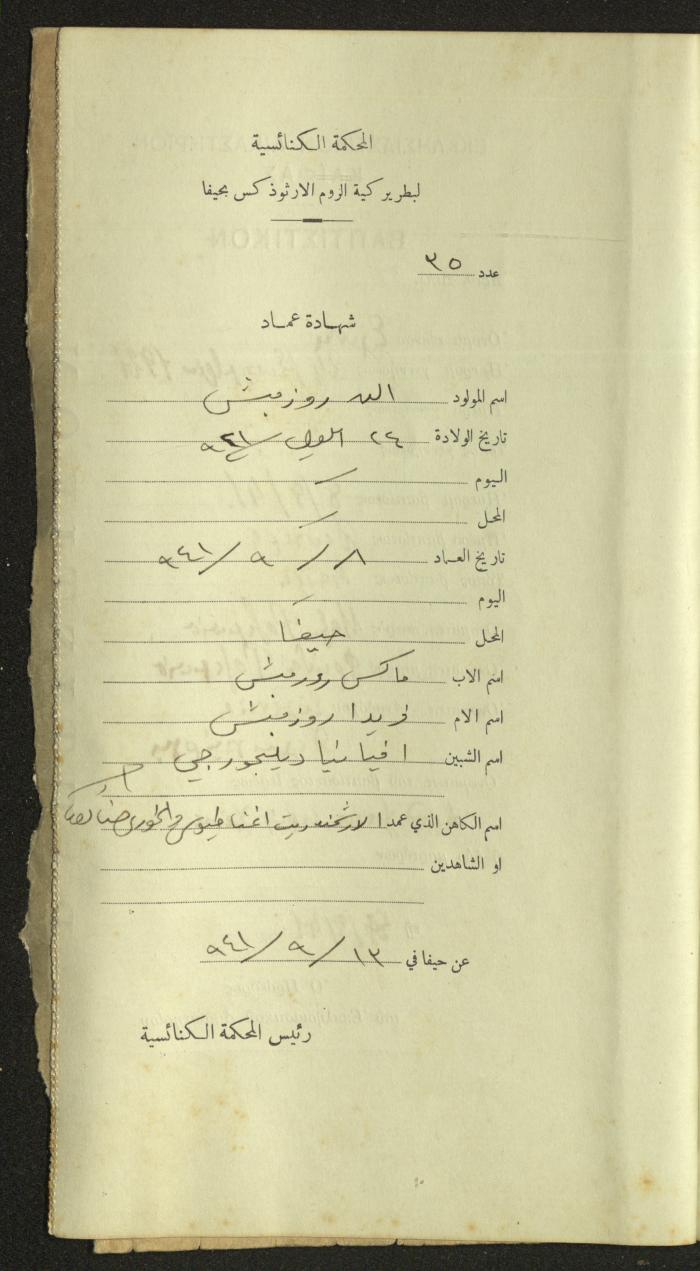 المحكمة الكنائسية
لبطريركية الروم الارثوذكس بحيفا
عدد ٣٥
شهادة عماد
اسم المولود روزمبش
تاريخ الولادة ٢٤ ٩٤١
اليوم
المحل
تاريخ العماد ٨ / ٩ / ٩٤١
اليوم
المحل حيفا
اسم الاب ماكس روزمبش
اسم الام فريدا روزمبش
اسم الشبين
اسم الكاهن الذي عمد الارشمندريت اغناطيوس والخوري
او الشاهدين
عن حيفا في ١٣ / ٩ / ٩٤١
رئيس المحكمة الكنائسية